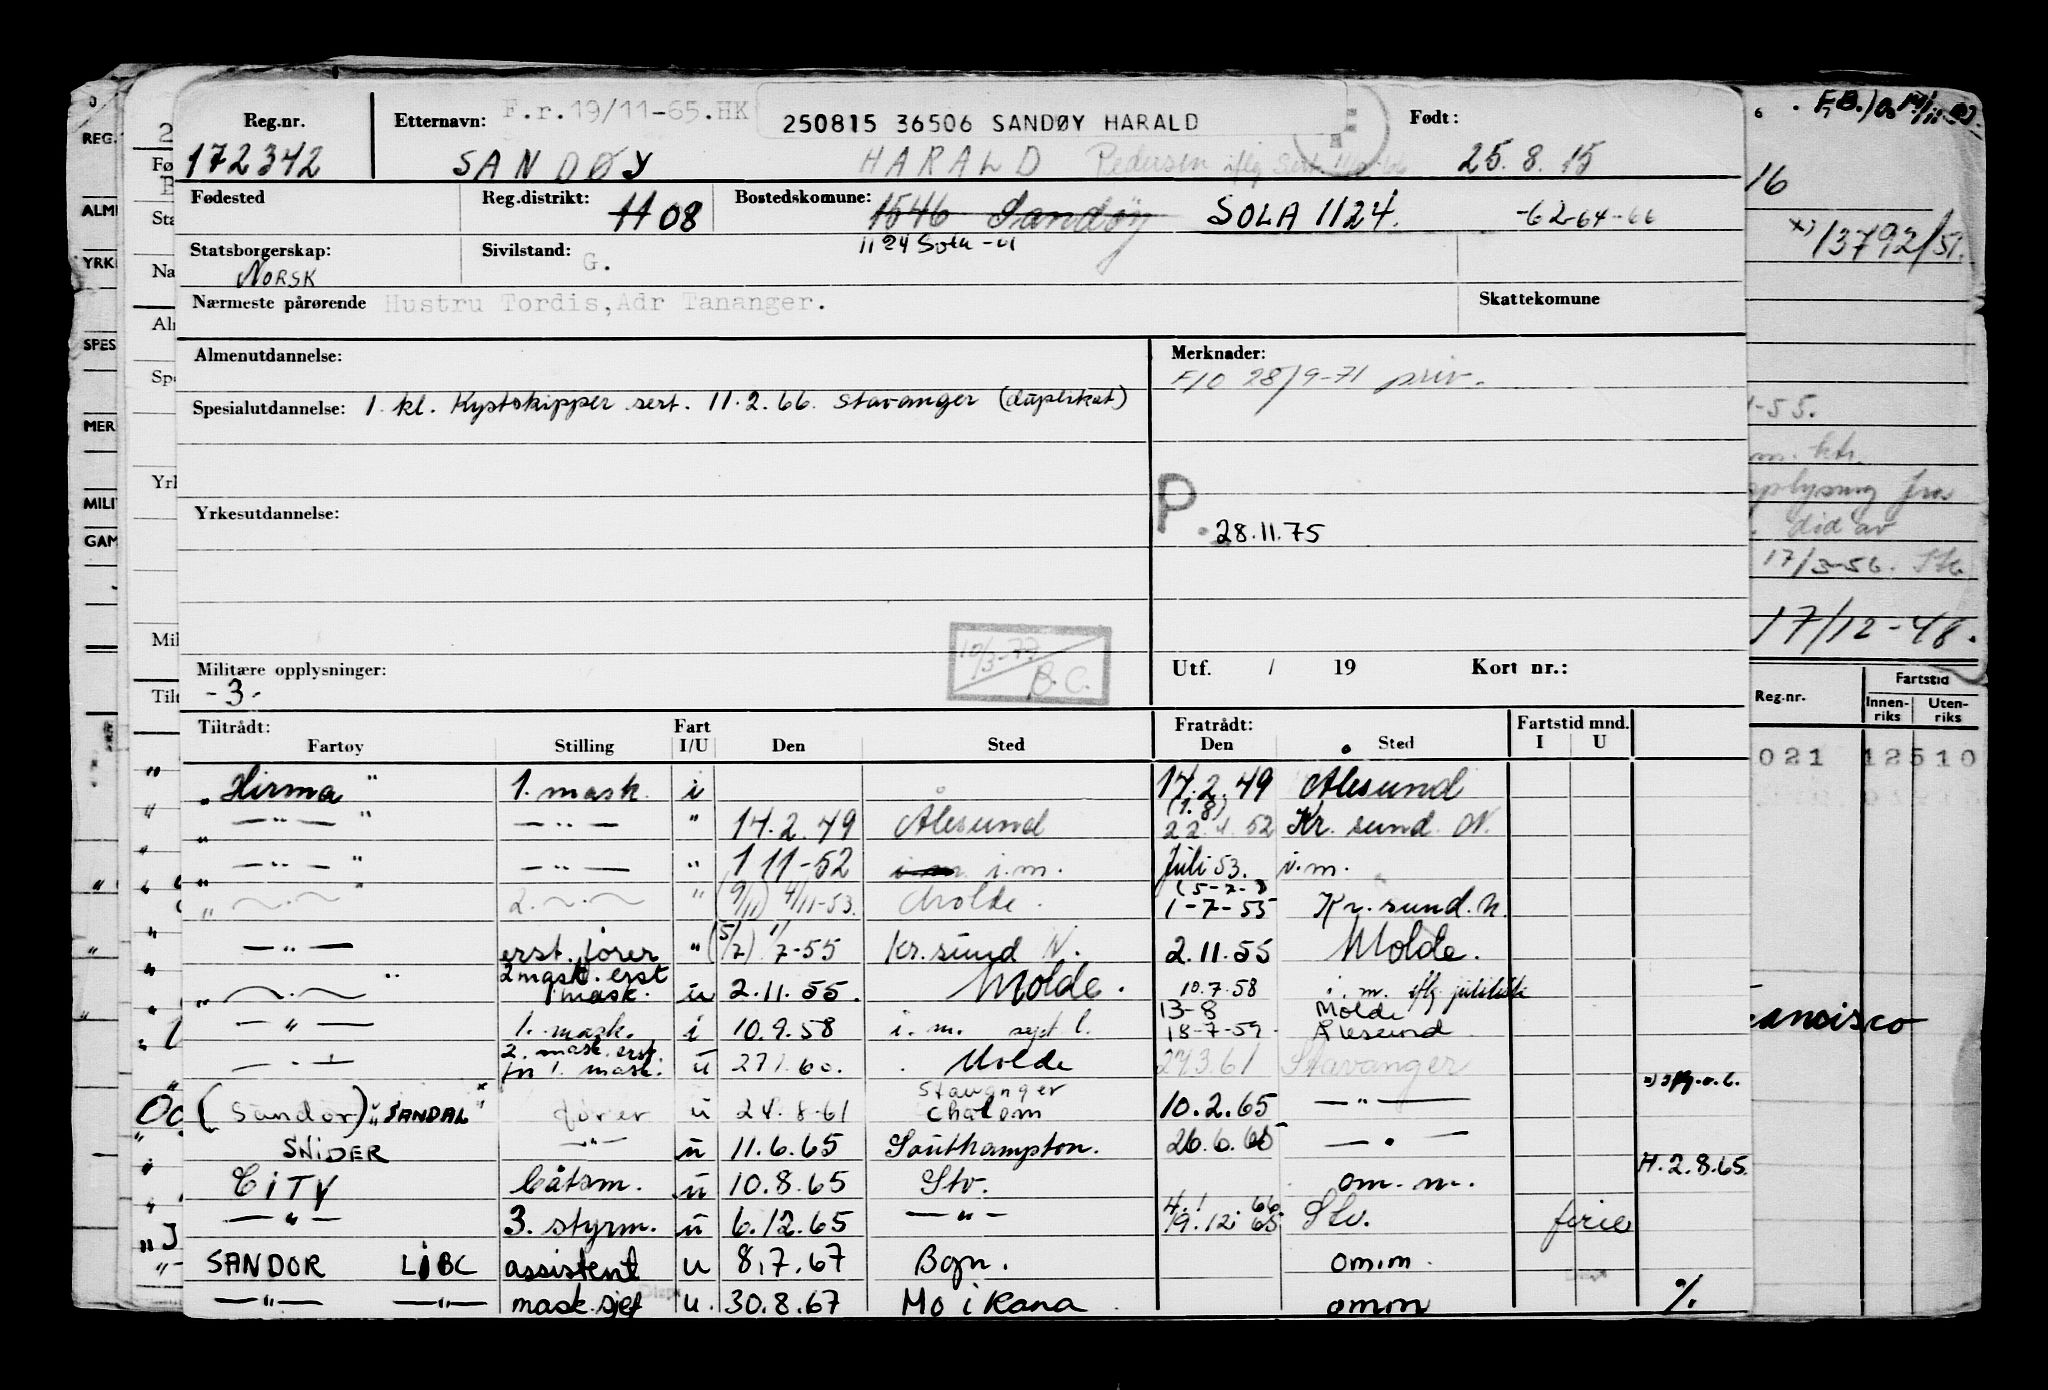 Reg.nr. Etternavn: F.r.19/11-65.HK 250815 36506 SANDØY HARALD Født:
172342 SANDØY HARALD Pedersen iflg 25.8.15
Fødested Reg.distrikt: 1108 Bostedskomune: 1546 Sandøy SOLA 1124. -62-64-66
1124 Sola -
Statsborgerskap: Sivilstand: G.
NORSK
Nærmeste pårørende Hustru Tordis,Adr Tananger. Skattekomune
Almenutdannelse: Merknader:
F/O 28/9-71 priv.
Spesialutdannelse: 1. kl. Kystskipper sert. 11.2.66. Stavanger (duplikat)
Yrkesutdannelse: P. 28.11.75
10/3-77 B.C.
Militære opplysninger: Utf. / 19 Kort nr.:
-3-
Tiltrådt: Fart Fratrådt: Fartstid mnd.
Fartøy Stilling I/U Den Sted Den Sted I U
"Hirma" 1. mask. i 14.2.49 Ålesund
— " — " — " — " 14.2.49 Ålesund (1.8) 22.4.52 Kr. sund. N.
— " — " — " — " 1 11-52 i.m. Juli 53. i.m.
" 2. " (9/11) 4/11-53. Molde. (5-7-) 1-7-55 Kr. sund. N.
— " — erst. fører " (5/7) 1/7-55 Kr. sund N. 2.11.55 Molde.
" 2 mask. erst 1 mask. u 2.11.55. Molde. 10.7.58 i. m. iflg.
— " — 1. mask. i 10.9.58 i. m. sept l. 13-8 18-7-59 Molde Ålesund
2. mask. erst. for 1. mask. u 27 1.60. Molde 27361 Stavanger
(Sandor) "SANDAL" x fører u 24.8-61 Stavanger 10.2.65 — " —
SNIDER — " — u 11.6.65 Southampton. 26.6.65 — " —
CITY båtsm. u 10.8.65 Stv. om. m. H.2.8.65
— " — 3. styrm. u 6.12.65 — " — 4.1 66 19.12.65 Stv. ferie
SANDOR LIBC assistent u 8.7.67 Bgn. omm.
— " — — " — mask.sjef u. 30.8.67 Mo i Rana omm %
16
13792/51.
-55.
did av
17/3-56.
17/12-48.
Fartstid
Reg.nr. Innen-riks Uten-riks
021 12510
REG.
ALM
YRK
SPES
MER
MILI
GAM
Fø
Sta
Na
Alr
Spe
Yrk
Mil
Tilt